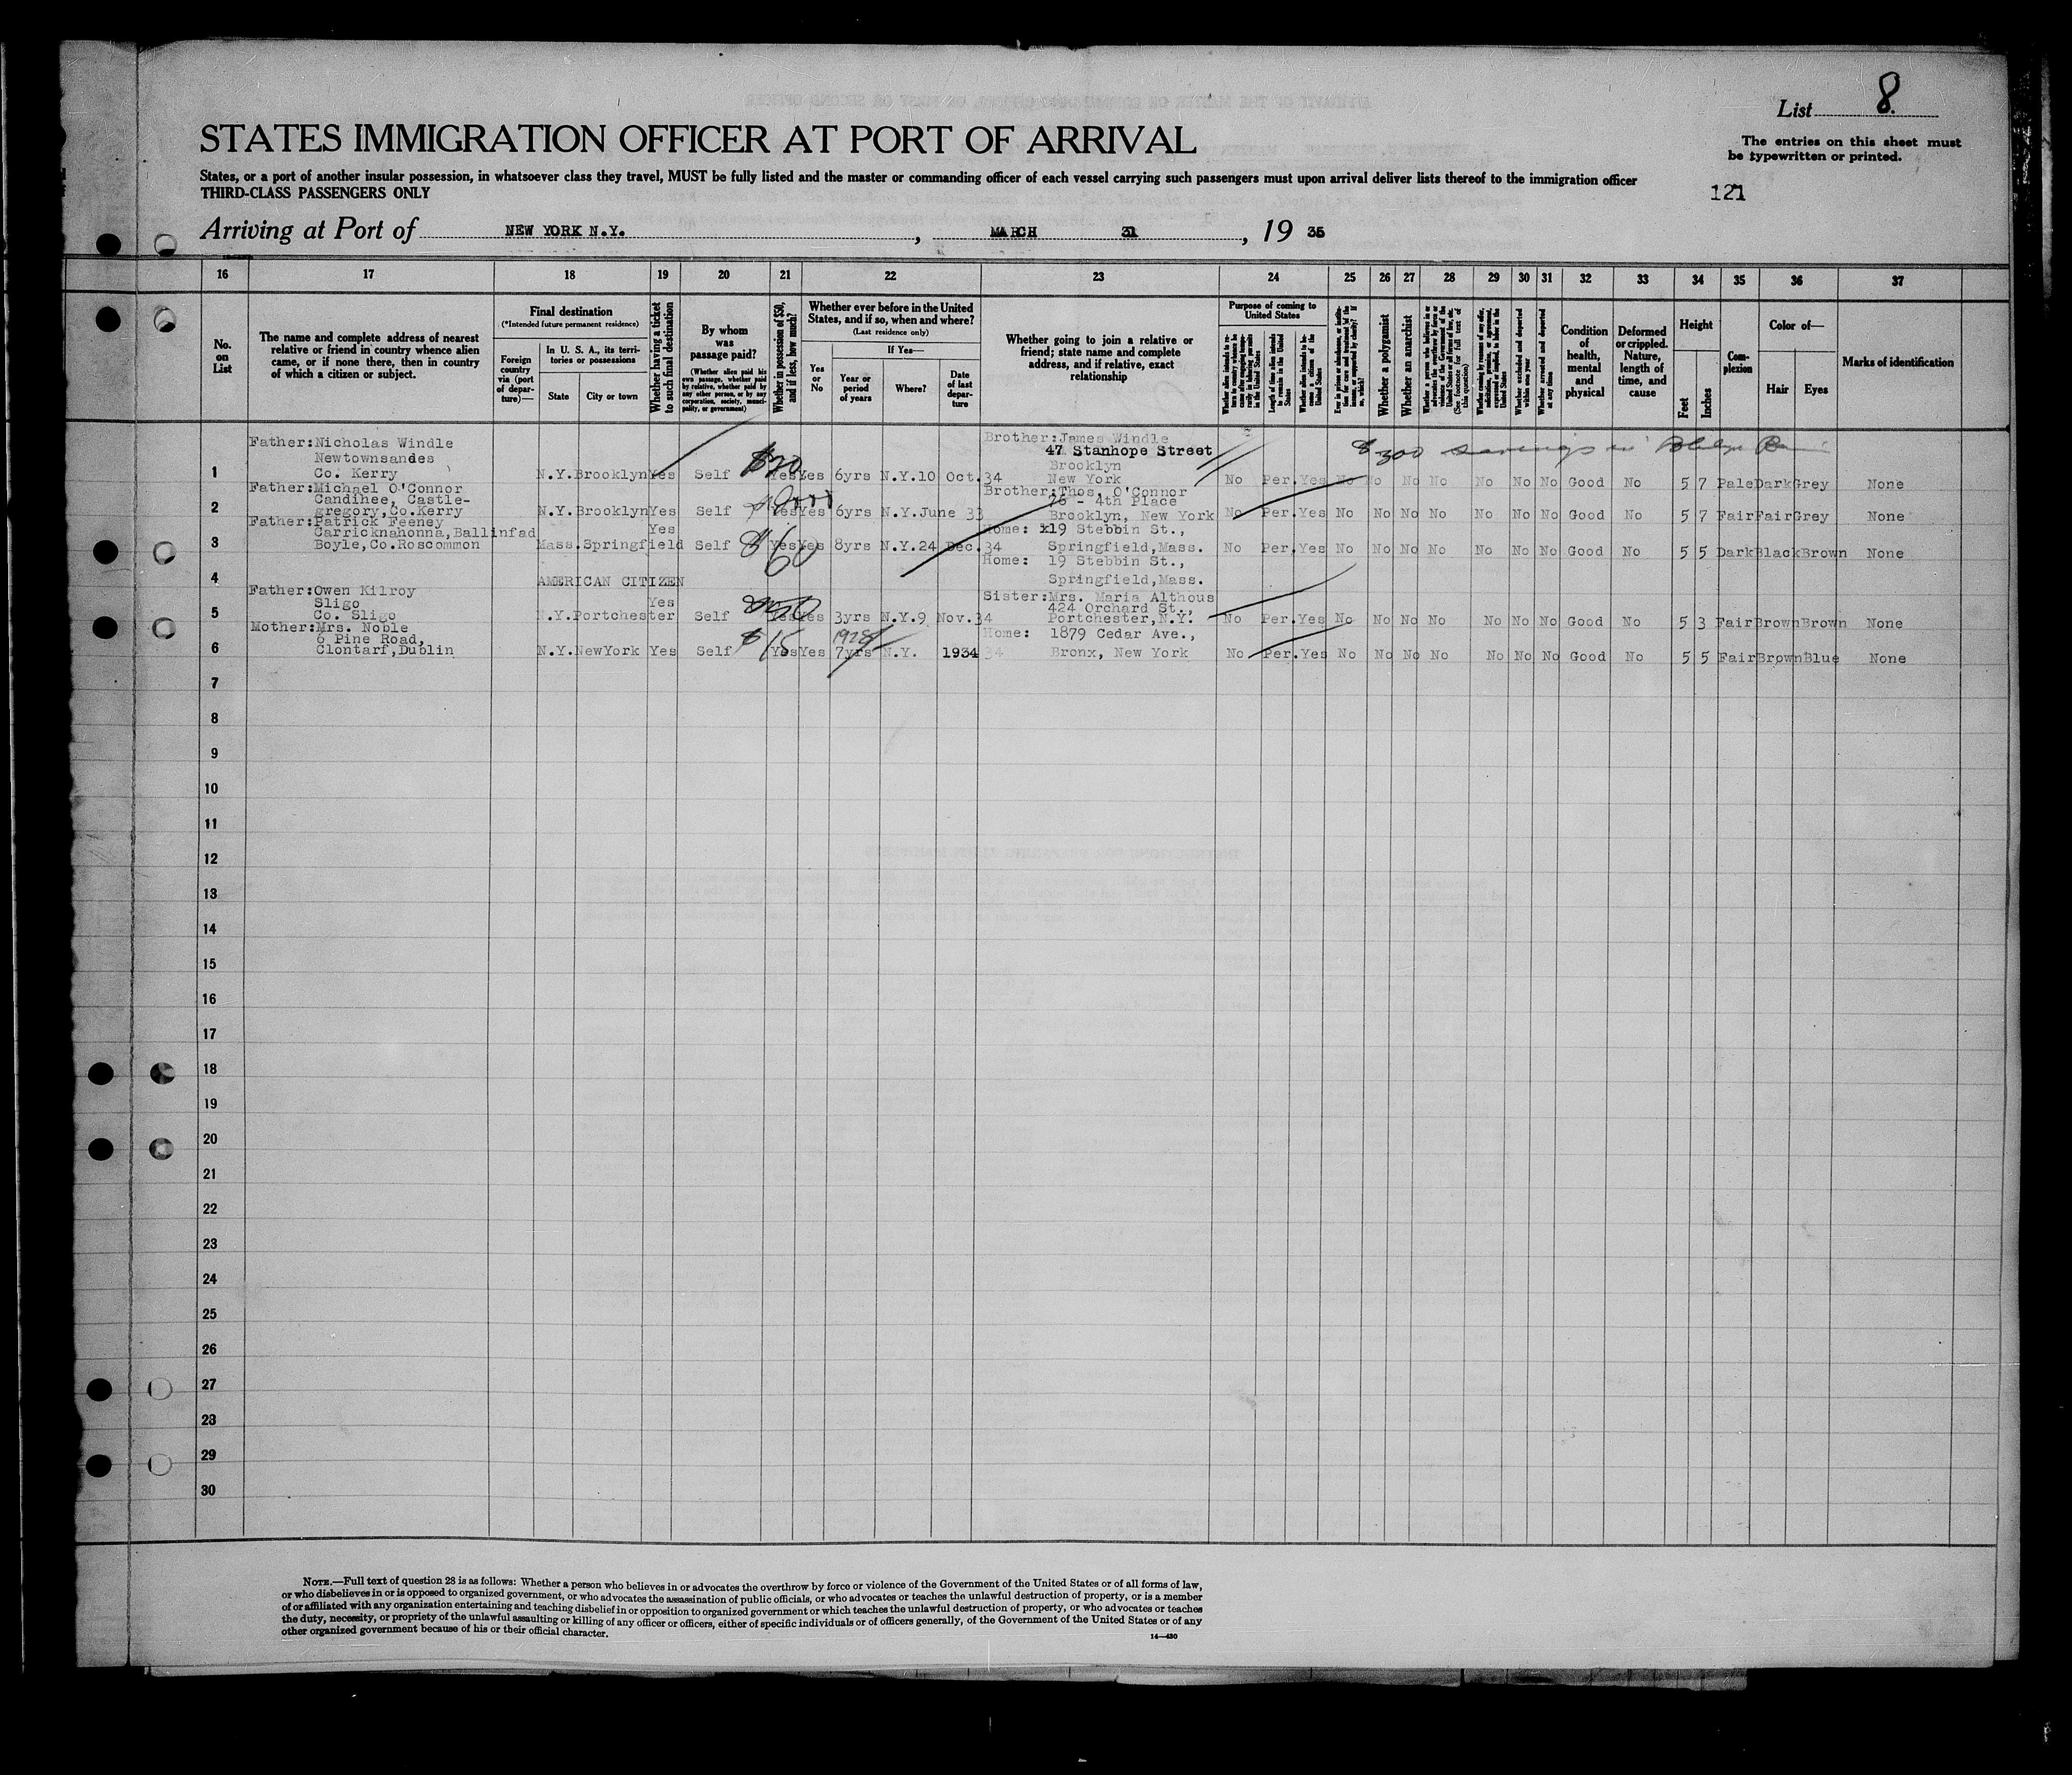 List 8.
STATES IMMIGRATION OFFICER AT PORT OF ARRIVAL
The entries on this sheet must
be typewritten or printed.
States, or a port of another insular possession, in whatsoever class they travel, MUST be fully listed and the master or commanding officer of each vessel carrying such passengers must upon arrival deliver lists thereof to the immigration officer
THIRD-CLASS PASSENGERS ONLY
121
Arriving at Port of NEW YORK N.Y., MARCH 31, 19 35
16 17 18 19 20 21 22 23 24 25 26 27 28 29 30 31 32 33 34 35 36 37
No. on List
The name and complete address of nearest
relative or friend in country whence alien
came, or if none there, then in country
of which a citizen or subject.
Final destination
(*Intended future permanent residence)
Foreign country via (port of departure)—
In U. S. A., its territories or possessions
State
City or town
Whether having a ticket to such final destination
By whom was passage paid?
(Whether alien paid his own passage, whether paid by relative, whether paid by any other person, or by any corporation, society, municipality, or government)
Whether in possession of $50, and if less, how much?
Whether ever before in the United
States, and if so, when and where?
(Last residence only)
Yes or No
If Yes—
Year or period of years
Where?
Date of last departure
Whether going to join a relative or
friend; state name and complete
address, and if relative, exact
relationship
Purpose of coming to
United States
Length of time alien intends to remain in the United States
Whether alien intends to become a citizen of the United States
Whether a polygamist
Whether an anarchist
(See footnote for full text of this question)
Whether excluded and deported within one year
Whether arrested and deported at any time
Condition of health, mental and physical
Deformed or crippled. Nature, length of time, and cause
Height
Feet
Inches
Complexion
Color of—
Hair
Eyes
Marks of identification
Father:Nicholas Windle
Newtownsandes
Co. Kerry
1 N.Y. Brooklyn Yes Self $30 Yes Yes 6yrs N.Y. 10 Oct.34
Brother:James Windle
47 Stanhope Street
Brooklyn
New York
No Per. Yes No No No No No No No Good No 5 7 Pale Dark Grey None
$300 savings in
Father:Michael O'Connor
Candihee, Castle-
gregory,Co.Kerry
2 N.Y. Brooklyn Yes Self Yes Yes 6yrs N.Y. June 33
Brother:Thos. O'Connor
26 - 4th Place
Brooklyn, New York
No Per. Yes No No No No No No No Good No 5 7 Fair Fair Grey None
Father:Patrick Feeney
Carricknahonna,Ballinfad
Boyle,Co.Roscommon
3 Mass. Springfield Yes Self $60 Yes Yes 8yrs N.Y. 24 Dec.34
Home: x19 Stebbin St.,
Springfield,Mass.
No Per. Yes No No No No No No No Good No 5 5 Dark Black Brown None
4 AMERICAN CITIZEN
Home: 19 Stebbin St.,
Springfield,Mass.
Father:Owen Kilroy
Sligo
Co. Sligo
5 N.Y. Portchester Yes Self $50 Yes Yes 3yrs N.Y. 9 Nov.34
Sister:Mrs. Maria Althous
424 Orchard St.,
Portchester,N.Y.
No Per. Yes No No No No No No No Good No 5 3 Fair Brown Brown None
Mother:Mrs. Noble
6 Pine Road,
Clontarf,Dublin
6 N.Y. NewYork Yes Self $15 Yes Yes 1928 7yrs N.Y. 1934 34
Home: 1879 Cedar Ave.,
Bronx, New York
No Per. Yes No No No No No No No Good No 5 5 Fair Brown Blue None
7
8
9
10
11
12
13
14
15
16
17
18
19
20
21
22
23
24
25
26
27
28
29
30
NOTE.—Full text of question 28 is as follows: Whether a person who believes in or advocates the overthrow by force or violence of the Government of the United States or of all forms of law,
or who disbelieves in or is opposed to organized government, or who advocates the assassination of public officials, or who advocates or teaches the unlawful destruction of property, or is a member
of or affiliated with any organization entertaining and teaching disbelief in or opposition to organized government or which teaches the unlawful destruction of property, or who advocates or teaches
the duty, necessity, or propriety of the unlawful assaulting or killing of any officer or officers, either of specific individuals or of officers generally, of the Government of the United States or of any
other organized government because of his or their official character.
14—430